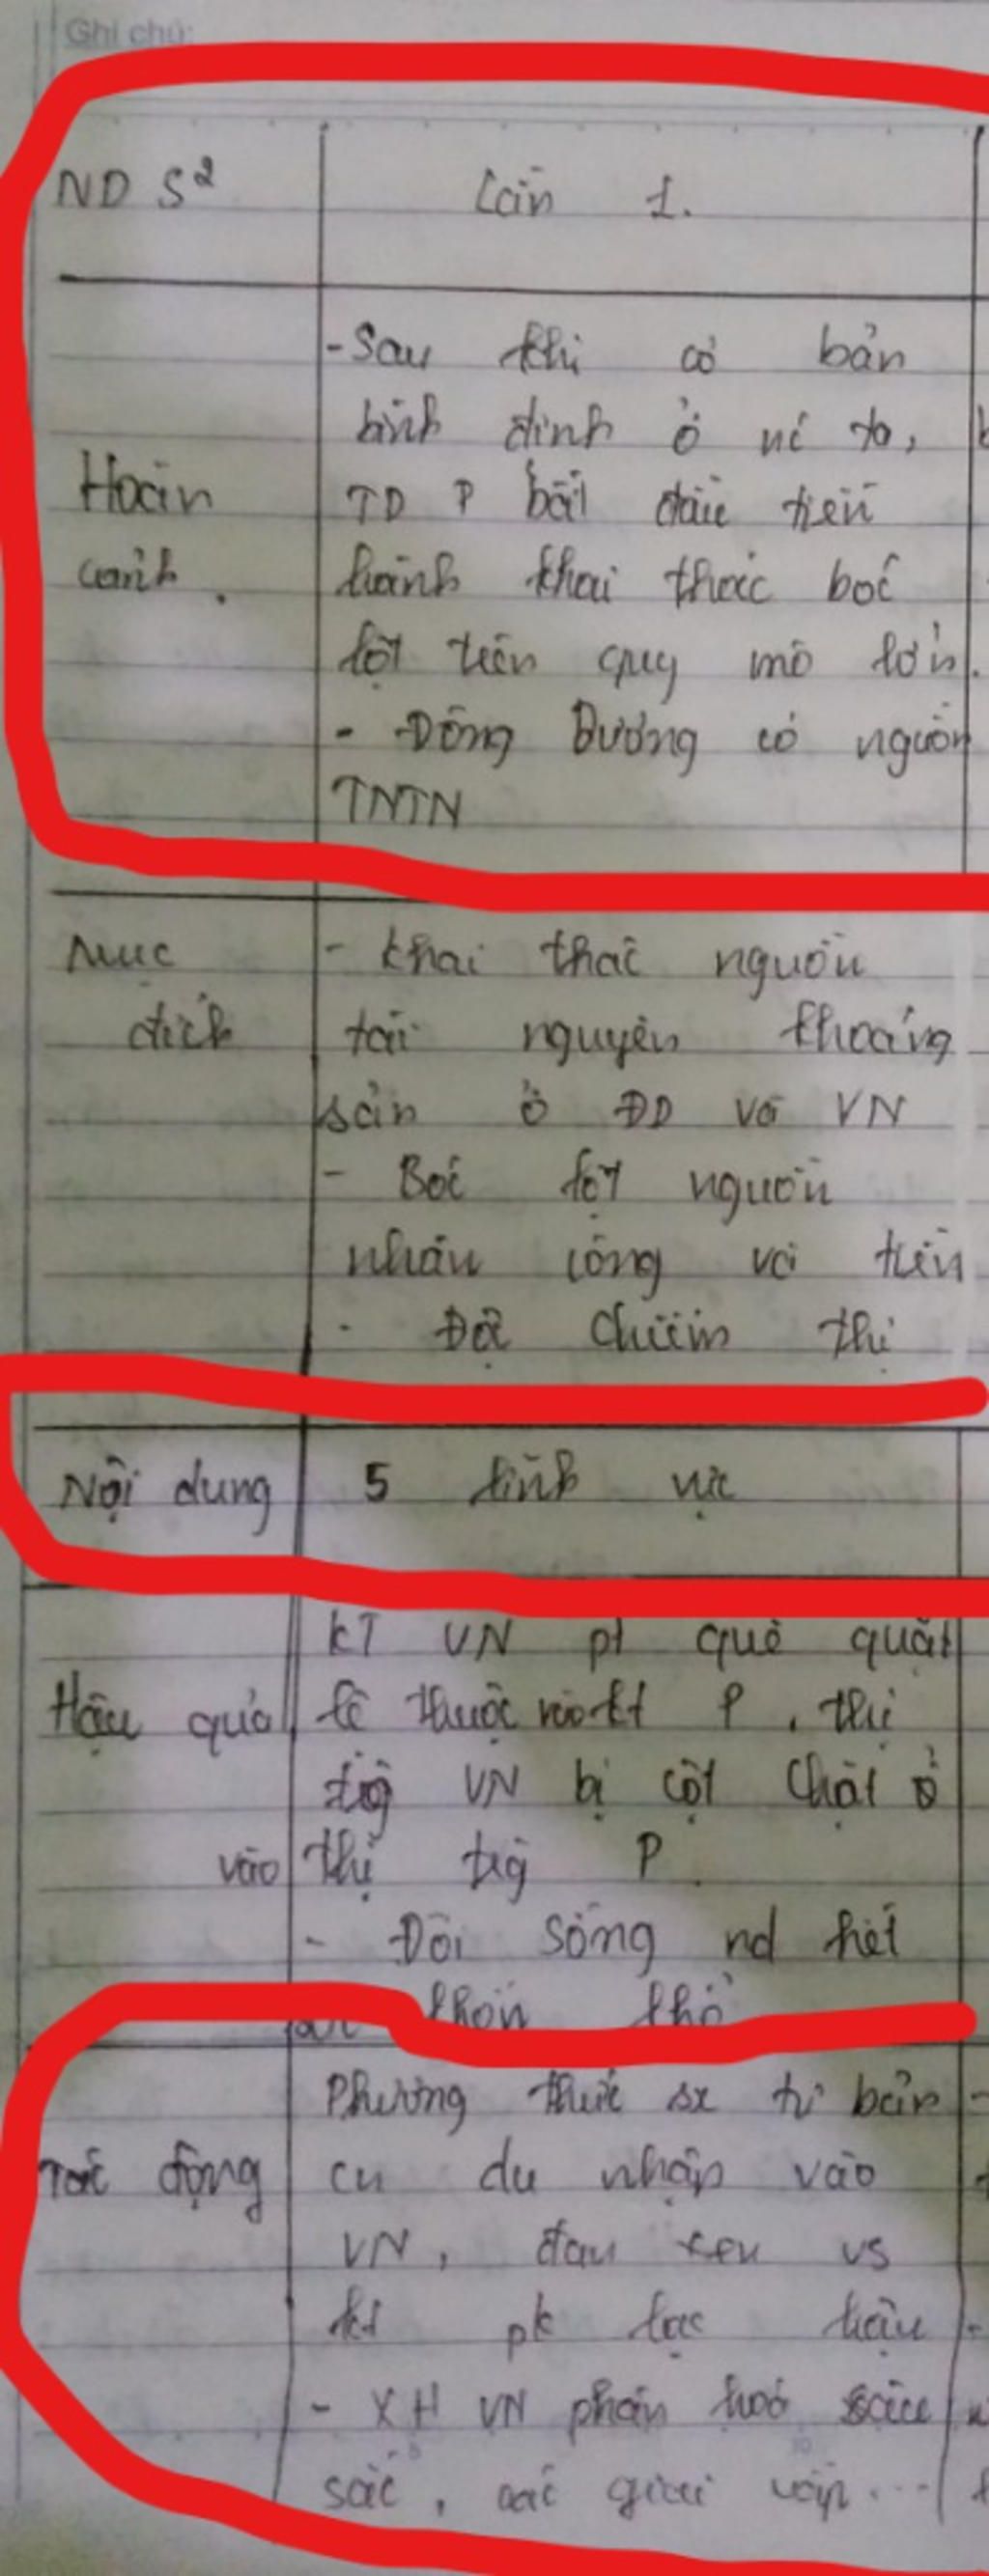 Ghi chú:
ND S² Lần 1.
- Sau khi cơ bản
bình định ở nc ta,
TD P bắt đầu tiến
Hoàn cảnh.
hành khai thác bóc
lột trên quy mô lớn.
- Đông Dương có nguồn
TNTN
Mục đích
- Khai thác nguồn
tài nguyên khoáng
sản ở ĐD và VN
- Bóc lột nguồn
nhân công và tiền
- Độc chiếm thị
Nội dung 5 lĩnh vực
KT VN pt què quặt
Hậu quả lệ thuộc vào kt P, thị
trg VN bị cột chặt ở
vào thị trg P
- Đời sống nd hết
khốn khổ
Phương thức sx tư bản
Tác động cn du nhập vào
VN, đan xen vs
kt pk lạc hậu
- XH VN phân hoá sâu
sắc, các giai cấp...